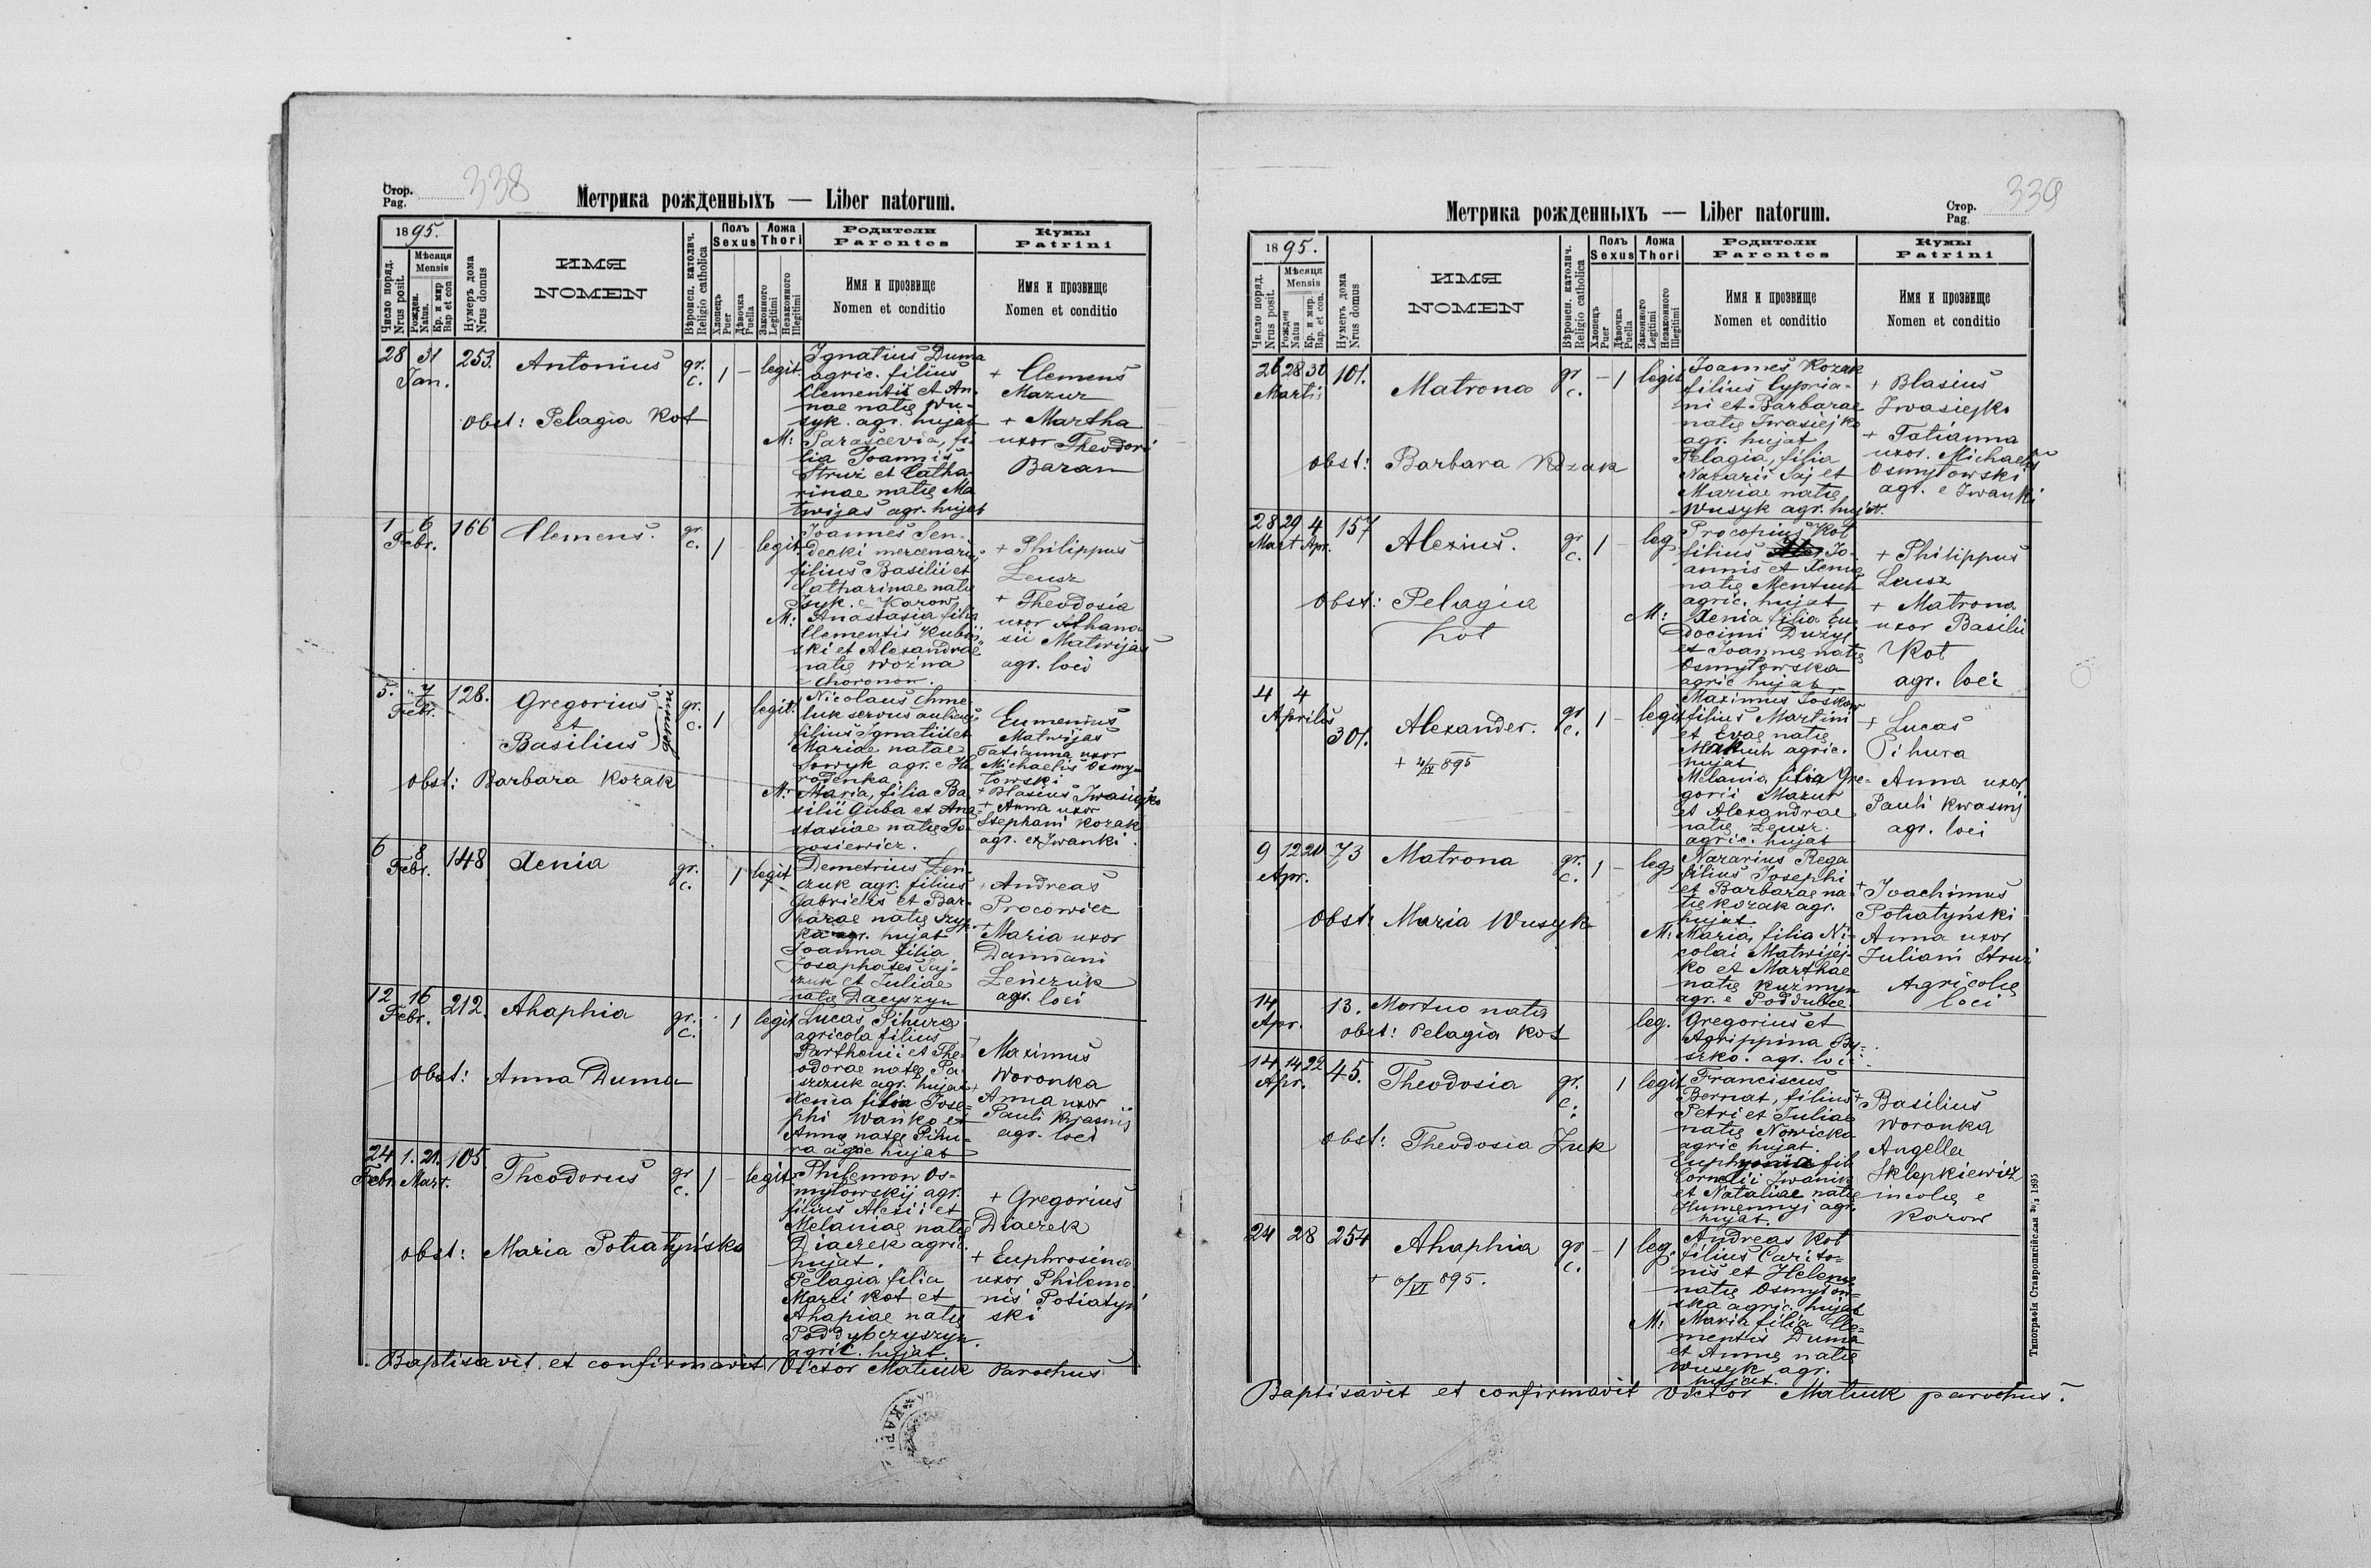 Стор.
Pag. 338
Метрика рожденныхъ — Liber natorum.
1895.
Число поряд.
Nrus posit.
Мѣсяця
Mensis
Рожден.
Natus.
Кр. и мир
Bap et con
Нумеръ дома
Nrus domus
ИМЯ
NOMEN
Вѣроисп. католич.
Religio catholica
Полъ
Sexus
Хлопецъ
Puer
Дѣвочка
Puella
Ложа
Thori
Законного
Legitimi
Незаконного
Illegitimi
Родители
Parentes
Имя и прозвище
Nomen et conditio
Кумы
Patrini
Имя и прозвище
Nomen et conditio
28 31 Jan. 253.
Antonius
gr. c. 1 – legit.
obst: Pelagia Kot
Ignatius Duma
agric. filius
Clementis et An-
nae natę Wu-
syk. agr. hujat
M: Parascevia, fi-
lia Joannis
Struż et Catha-
rinae natę Ma
twijas agr. hujat
+ Clemens
Mazur
+ Martha
uxor Theodori
Baran
1 6 Febr. 166
Clemens.
gr. c. 1 – legit.
Joannes Sen-
decki mercenarius
filius Basilii et
Catharinae natę
Isyk. e Korow.
M: Anastasia filia
Clementis Kubii-
ski et Alexandrae
natę Woźna
e Choronow.
+ Philippus
Leusz
+ Theodosia
uxor Athana
sii Matwijas
agr. loci
5. 7 Febr. 128.
Gregorius
et
Basilius
gemini
gr. c. 1 legit.
obst: Barbara Kozak
Nicolaus Chme
luk servus aulicus
filius Ignatii et
Mariae natae
Sowyk agr. e Ho
rodenka
M: Maria, filia Ba
silii Guba et Ana
stasiae natę To-
rosiewicz.
Eumenius
Matwijas
Tatianna uxor
Michaelis Osmy-
łowski
+ Blasius Iwasiejko
+ Anna uxor
Stephani Kozak
agr. ex Iwanki.
6 8 Febr. 148
Xenia
gr. c. 1 legit
Demetrius Łen-
czuk agr. filius
Gabrielis et Bar-
barae natę Szyp-
ka agr. hujat
Joanna filia
Josaphates Saj-
czuk et Juliae
natę Dacyszyn
+ Andreas
Procowicz
+ Maria uxor
Damiani
Łeńczuk
agr. loci
12 16 Febr. 212.
Ahaphia
gr. c. 1 legit
obst: Anna Duma
Lucas Pihura
agricola filius
Parthenii et The-
odorae natę Pa-
szczuk agr. hujat
Xenia filia Jose-
phi Wańko et
Annę natę Pihu-
ra agric hujat
+ Maximus
Woronka
+ Anna uxor
Pauli Kwasnij
agr. loci
24 Febr. 1. 21. Mart. 105
Theodorus
gr c. 1 – legit
obst: Maria Potiatyńska
Philemon Os-
myłowskij agr.
filius Alexii et
Melaniae natę
Diaczek agric.
hujat.
Pelagia filia
Marci Kot et
Ahapiae natę
Poddybczyszyn
agric. hujat.
+ Gregorius
Diaczek
+ Euphrosina
uxor Philemo
nis Potiatyń
ski
Baptisavit et confirmavit Victor Matiuk Parochus
Метрика рожденныхъ — Liber natorum.
Стор.
Pag. 339
1895.
Число поряд.
Nrus posit.
Мѣсяця
Mensis
Рожден
Natus
Кр. и мир.
Bap. et con.
Нумеръ дома
Nrus domus
ИМЯ
NOMEN
Вѣроисп. католич.
Religio catholica
Полъ
Sexus
Хлопецъ
Puer
Дѣвочка
Puella
Ложа
Thori
Законного
Legitimi
Незаконного
Illegitimi
Родители
Parentes
Имя и прозвище
Nomen et conditio
Кумы
Patrini
Имя и прозвище
Nomen et conditio
26 28 30 Martis 101.
Matrona
gr c. – 1 legit
obst: Barbara Kozak
Joannes Kozak
filius Cypria-
ni et Barbarae
natę Iwasiejko
agr. hujat
Pelagia, filia
Nazarii Saj et
Mariae natę
Wusyk agr. hujat.
+ Blasius
Iwasiejko
+ Tatianna
uxor. Michaelis
Osmyłowski
agr. e Iwanki
28 29 4 Mart Apr. 157
Alexius.
gr c. 1 – leg
obst: Pelagia
Kot
Procopius Kot
filius Jo-
annis et Xeniae
natę Mentuch
agric. hujat
M: Xenia filia Eu
docimi Dużyj
et Joannę natę
Osmyłowska
agric hujat.
+ Philippus
Leusz
+ Matrona
uxor Basilii
Kot
agr. loci
4 4 Aprilis 301.
Alexander.
gr c. 1 – legit
+ 4/IV 895
Maximus Toskow
filius Martini
et Evae natę
Matiuch agric.
hujat
Melania filia Gre-
gorii Mazur
et Alexandrae
natę Leusz.
agric. hujat
+ Lucas
Pihura
Anna uxor
Pauli Kwasnij
agr. loci
9 12 20 Apr. 73
Matrona
gr. c. 1 – leg
obst: Maria Wusyk
Nazarius Rega
filius Josephi
et Barbarae na
tę Kozak agr.
hujat
M: Maria, filia Ni-
colai Matwijej-
ko et Marthae
natę Kuźmyn
agr. e Poddubce.
+ Joachimus
Potiatyński
Anna uxor
Juliani Struż
Agricolę
loci
14 Apr. 13.
Mortuo nata
leg.
obst: Pelagia Kot
Gregorius et
Agrippina By-
szko. agr. loci.
14 14 22 Apr. 45.
Theodosia
gr. c. 1 legit
obst: Theodosia Żuk
Franciscus
Bernat, filius
Petri et Juliae
natę Nowicka
agric hujat.
Euphrosina fil
Cornelii Iwanik
et Nataliae natę
Humennyj agr.
hujat.
+ Basilius
Woronka
Angella
Sklepkiewicz
incolę e
Korow
24 28 254
Ahaphia
gr c. – 1 leg.
+ 6/VI 895.
Andreas Kot
filius Carito-
nis et Helenę
natę Osmyłow-
ska agric. hujat
M: Maria filia Cle-
mentis Duma
et Annę natę
Wusyk agr.
hujat.
Baptisavit et confirmavit Victor Matiuk parochus.
Типографія Ставропигійская 1895